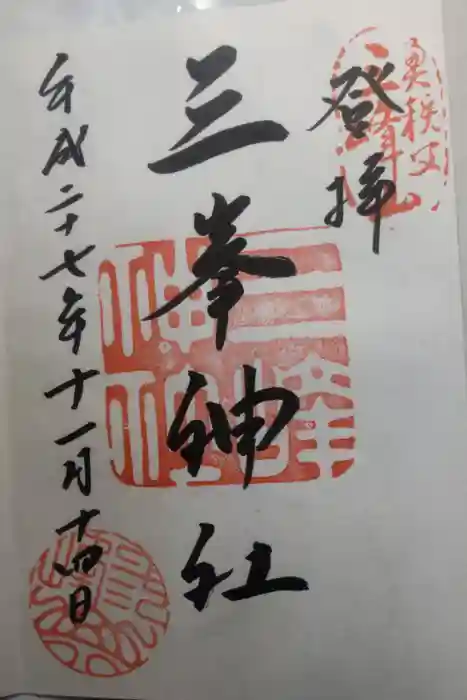 奥秩父
三峰山
登拝
三峯神社
三峰神社
平成二十七年十一月十四日